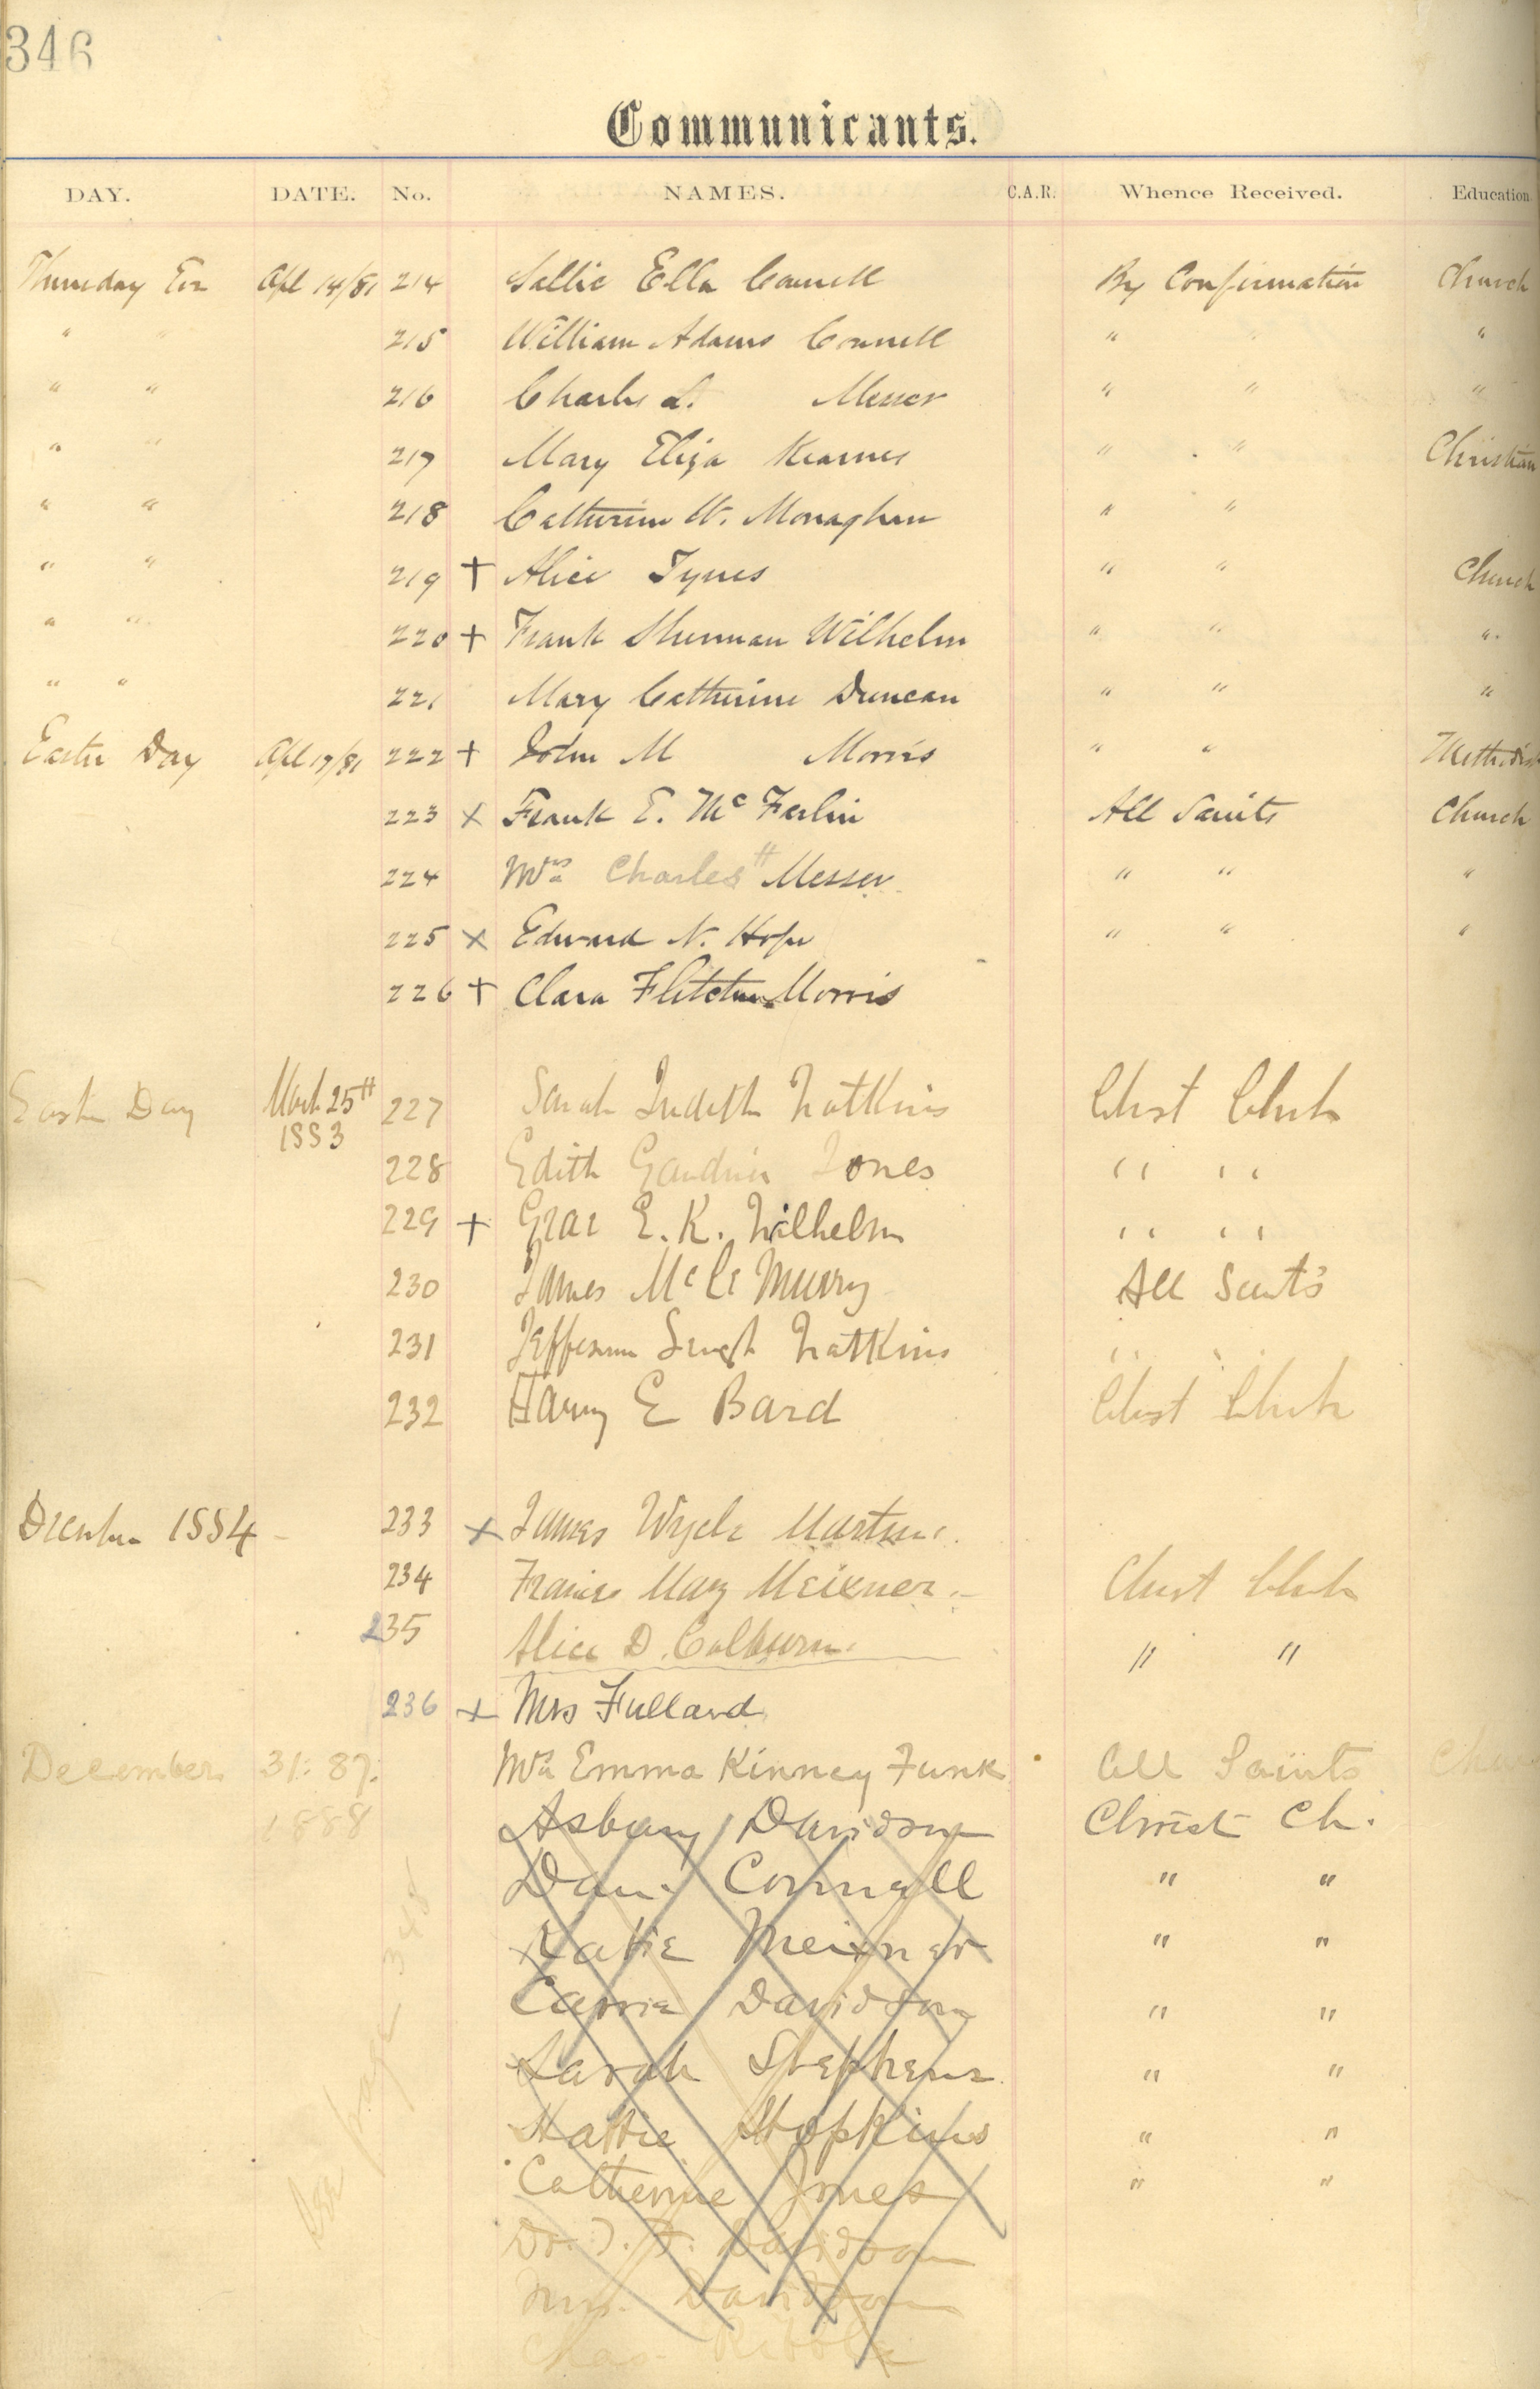 346
Communicants.
DAY. DATE. No. NAMES. C.A.R. Whence Received. Education
Thursday Eve Apl 14/81 214 Sallie Ella Connell By Confirmation Church
" " 215 William Adams Connell " " "
" " 216 Charles L. Messer " " "
" " 217 Mary Eliza Kearnes " " Christian
" " 218 Catherine W. Monaghan " "
" " 219 + Alice Tynes " " Church
" " 220 + Frank Sherman Wilhelm " " "
" " 221 Mary Catherine Duncan " " "
Easter Day Apl 17/81 222 + John M Morris " " Methodist
223 x Frank E. McFerlin All Saints Church
224 Mrs Charles H Messer " " "
225 x Edward N. Hope " " "
226 + Clara Fletcher Morris
Easter Day March 25th 1883 227 Sarah Judith Watkins Christ Church
228 Edith Gardner Jones " "
229 + Grace E. K. Wilhelm " "
230 James Murry All Saints
231 Jefferson Watkins " "
232 Harry E Bard Christ Church
December 1884 - 233 x James Martin
234 Frances May Meixner Christ Church
235 Alice D. Colburn " "
236 x Mrs Fullard
December 31: 87. Mrs Emma Kinney Funk All Saints
1888 Asbury Davidson Christ Ch.
Dan. Connell " "
Katie Meixner " "
Carrie Davidson " "
Sarah Stephens " "
Hattie Hopkins " "
Catherine Jones " "
Dr. J. F. Davidson
Mrs. Davidson
Chas. Ribble
See page 348